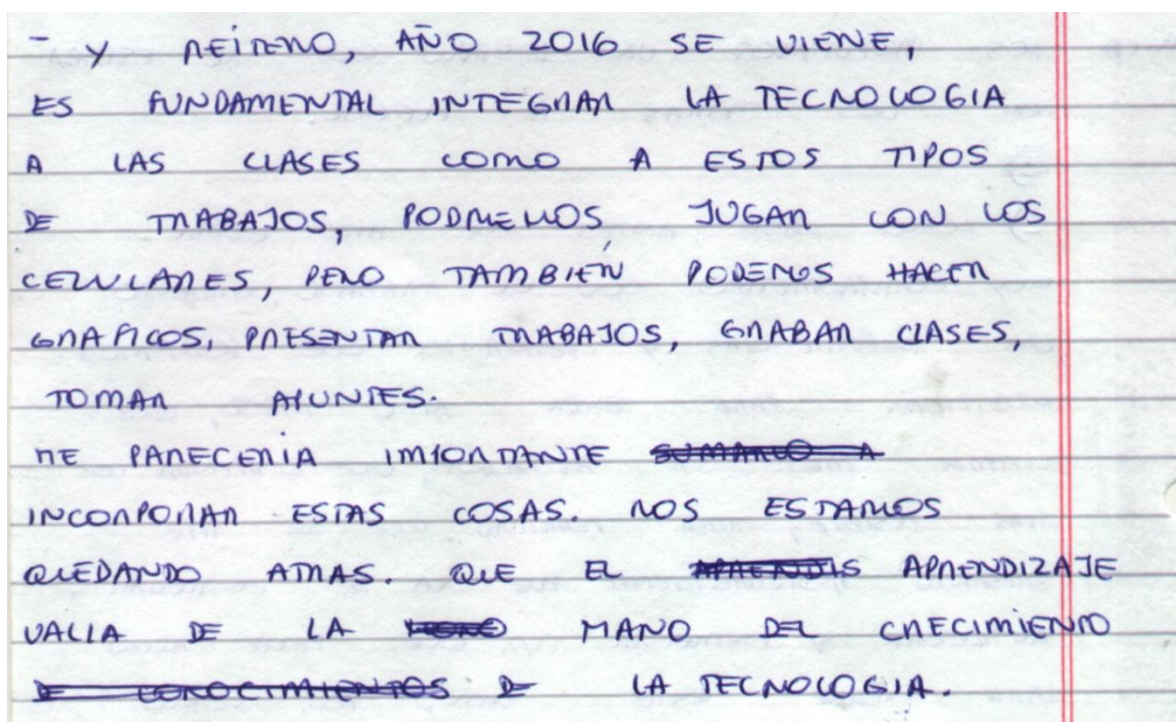 - Y REITERO, AÑO 2016 SE VIENE,
ES FUNDAMENTAL INTEGRAR LA TECNOLOGIA
A LAS CLASES COMO A ESTOS TIPOS
DE TRABAJOS, PODREMOS JUGAR CON LOS
CELULARES, PERO TAMBIÉN PODEMOS HACER
GRAFICOS, PRESENTAR TRABAJOS, GRABAR CLASES,
TOMAR APUNTES.
ME PARECERIA IMPORTANTE SUMARLO A
INCORPORAR ESTAS COSAS. NOS ESTAMOS
QUEDANDO ATRAS. QUE EL APRENDIS APRENDIZAJE
VALLA DE LA MANO DEL CRECIMIENTO
DE CONOCIMIENTOS DE LA TECNOLOGIA.